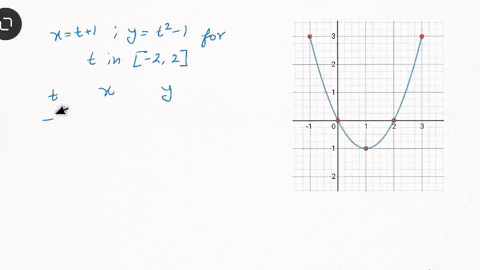 x = t+1 ; y = t²-1 for
t in [-2, 2]
t x y
-
3
2
1
-1 0 1 2 3
-1
2